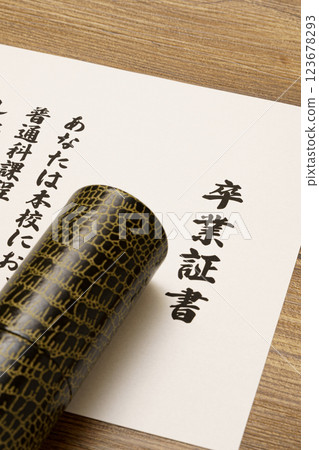 卒業証書
あなたは本校にお
普通科課程
PIXTA
123678293